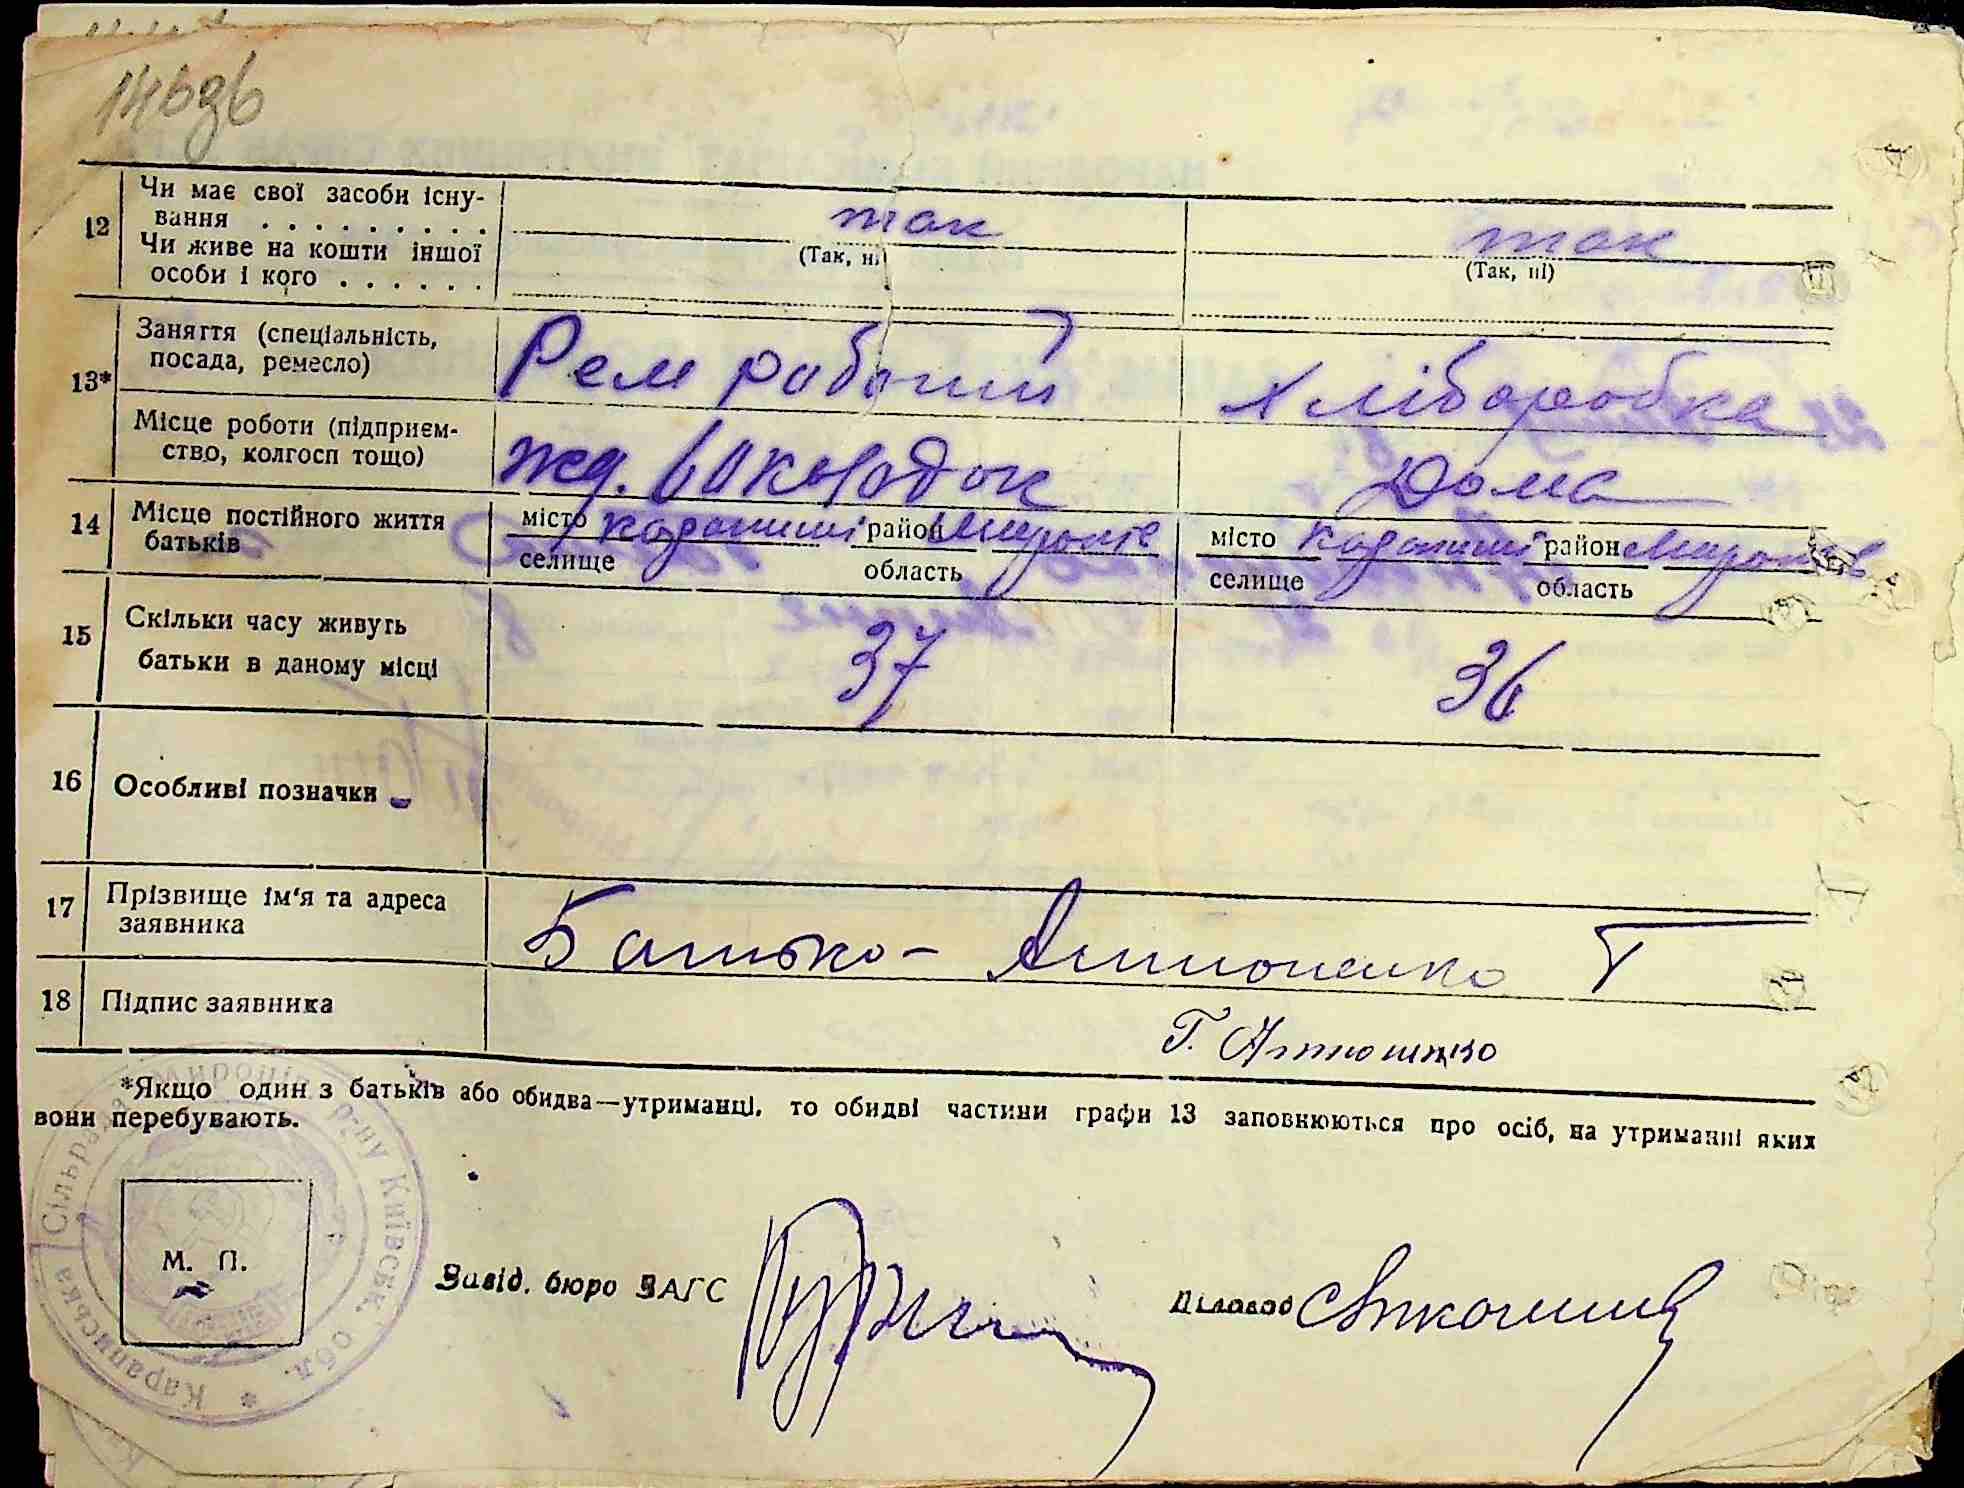 12
Чи має свої засоби існу-
вання . . . . . . . . .
так
так
(Так, ні)
(Так, ні)
Чи живе на кошти іншої
особи і кого . . . . . .
13*
Заняття (спеціальність,
посада, ремесло)
Рем робочий
Хліборобка
Місце роботи (підприєм-
ство, колгосп тощо)
жд.
Дома
14
Місце постійного життя
батьків
місто Карапиші район Миронів
місто Карапиші район Миронів
селище область
селище область
15
Скільки часу живуть
батьки в даному місці
37
36
16
Особливі позначки
17
Прізвище ім'я та адреса
заявника
Батько - Антоненко Г
18
Підпис заявника
Г. Антоненко
*Якщо один з батьків або обидва—утриманці, то обидві частини графи 13 заповнюються про осіб, на утриманні яких
вони перебувають.
Караписька Сільрада Миронів. р-ну Київськ. обл.
М. П.
Завід. бюро ЗАГС
Діловод